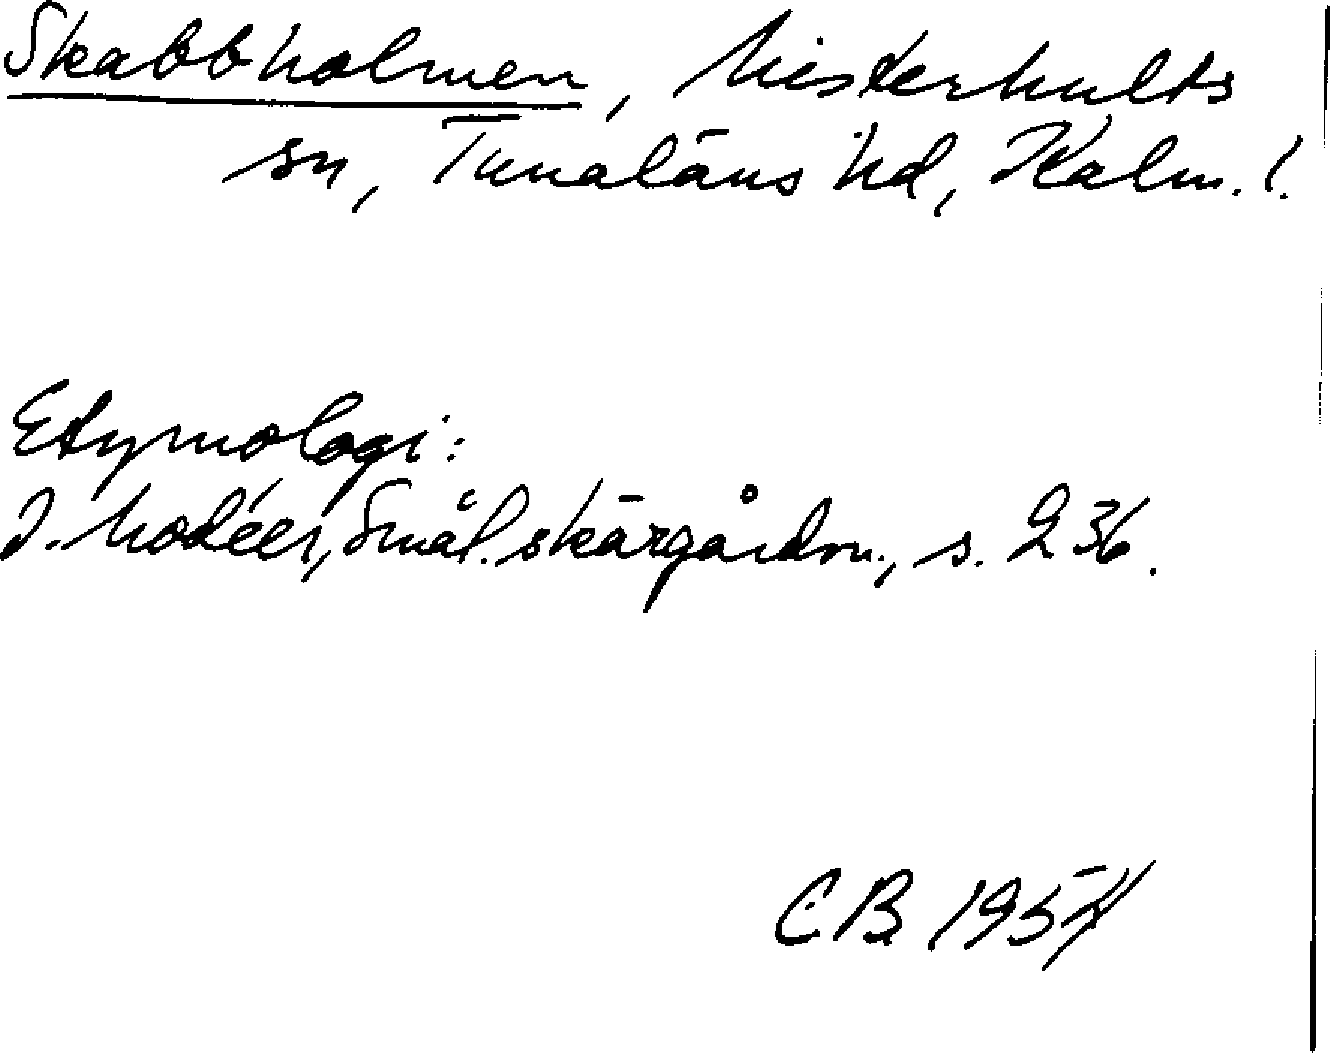 Skabbholmen, Misterhults
sn, Tunaläns hd, Kalm. l.
Etymologi:
I. Modéer, Smål. skärgårdsn., s. 236.
CB 1954